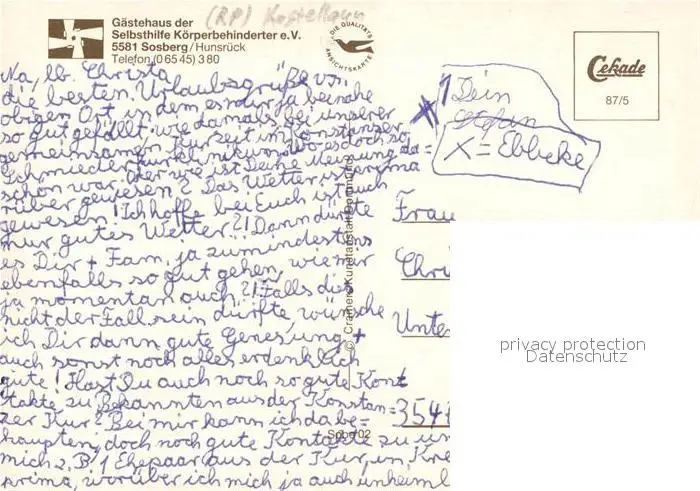 (RP) Kastellaun
Gästehaus der
Selbsthilfe Körperbehinderter e.V.
5581 Sosberg/Hunsrück
Telefon (0 65 45) 3 80
DIE QUALITÄTS
ANSICHTSKARTE
Cekade
87/5
Na, lb. Christa
die besten Urlaubsgrüße von
obigen Ort, in dem es mir ja beinahe
so gut gefällt wie damals bei unserer
gemeinsamen Kurzeit im Konstanzer
Schmieder Kurklinikum, wo es doch so
schön war. Oder wie ist Deine Meinung da=
rüber gewesen? Das Wetter ist prima
gewesen! Ich hoffe, bei Euch ist auch
nur gutes Wetter?! Dann dürfte
es Dir + Fam. ja zumindestens
ebenfalls so gut gehen, wie mir
ja momentan auch?! Falls dies
nicht der Fall sein dürfte, wünsche
ich Dir dann gute Genesung +
auch sonst noch alles erdenklich
gute! Hast Du auch noch so gute Kont
takte zu Bekannten aus der Konstan=
zer Kur? Bei mir kann ich da be=
haupten, doch noch gute Kontakte zu un
mich z. B. 1 Ehepaar aus der Kur, in Kre
prima, worüber ich mich ja auch unheiml
1 Dein
X = Ebbeke
Frau
Chri
Unte
354
© Cramers Kunstanstalt Dortmund
Sbg 02
privacy protection
Datenschutz